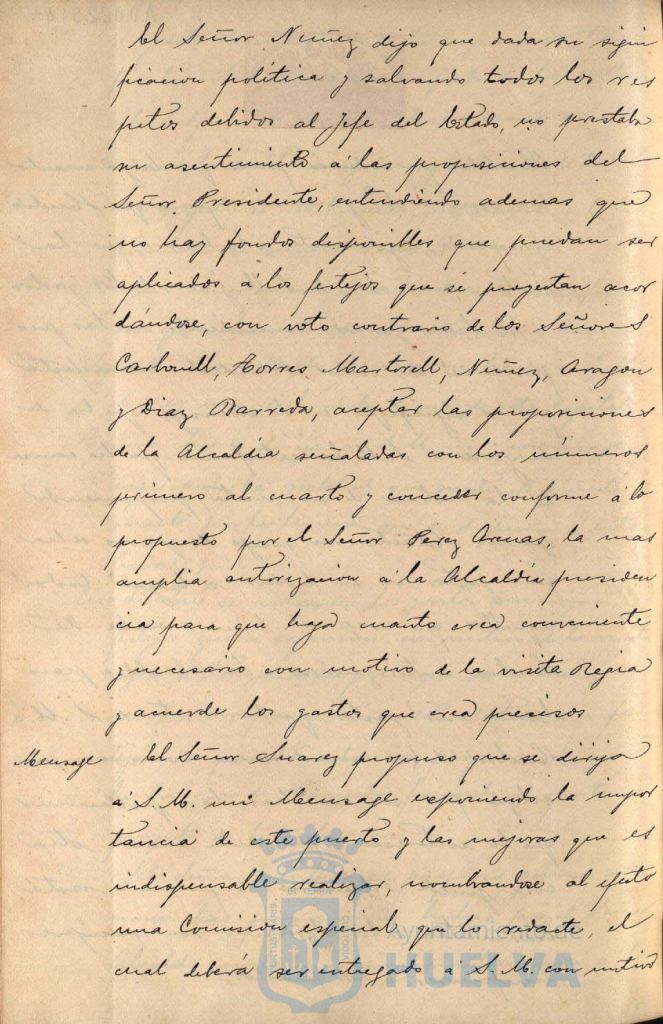 El Señor Nuñez dijo que dada su signi
ficacion política y salvando todos los res
petos debidos al Jefe del Estado, no prestaba
su asentimiento á las proposiciones del
Señor Presidente, entendiendo ademas que
no hay fondos disponibles que puedan ser
aplicados á los festejos que se proyectan acor
dándose, con voto contrario de los Señores
Carbonell, Torres Martorell, Nuñez, Aragon
y Diaz Barreda, aceptar las proposiciones
de la Alcaldía señaladas con los números
primero al cuarto y conceder conforme á lo
propuesto por el Señor Perez Arenas, la mas
amplia autorizacion á la Alcaldía presiden
cia para que haga cuanto crea conveniente
y necesario con motivo de la visita Regia
y acuerde los gastos que crea precisos
Mensage El Señor Suarez propuso que se dirija
á S. M. un Mensage exponiendo la impor
tancia de este puerto y las mejoras que es
indispensable realizar, nombrandose al efecto
una Comision especial que lo redacte, el
cual deberá ser entregado á S. M. con motivo
Ayuntamiento de
HUELVA